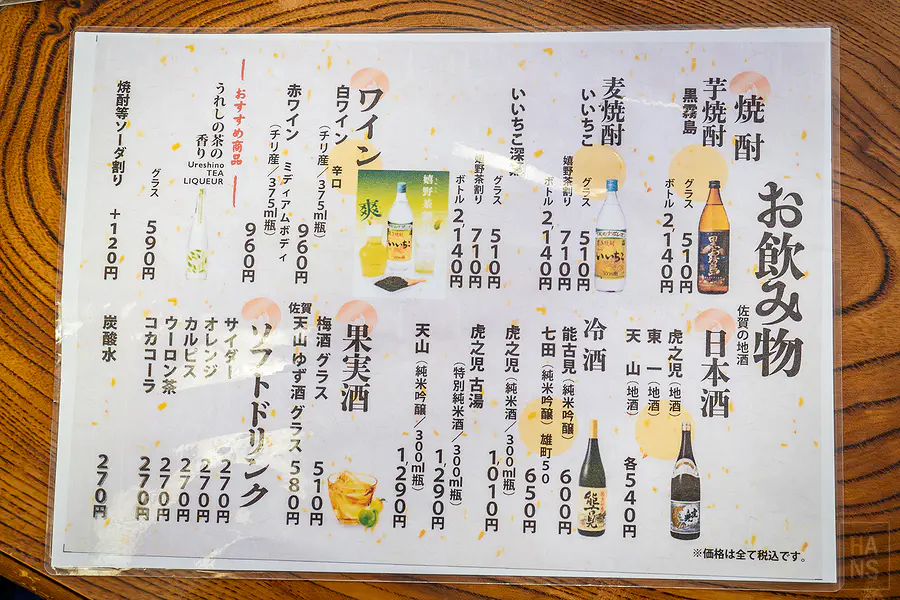 お飲み物
焼酎
芋焼酎
黒霧島
グラス 510円
ボトル 2,140円
麦焼酎
いいちこ
グラス 510円
嬉野茶割り 710円
ボトル 2,140円
いいちこ深
グラス 510円
嬉野茶割り 710円
ボトル 2,140円
嬉野茶
爽
いいちこ
ワイン
白ワイン 辛口
(チリ産/375ml瓶) 960円
赤ワイン ミディアムボディ
(チリ産/375ml瓶) 960円
おすすめ商品
うれしの茶の
香り
Ureshino
TEA
LIQUEUR
グラス 590円
焼酎等ソーダ割り +120円
佐賀の地酒
日本酒
虎之児(地酒)
東一(地酒)
天山(地酒)
各540円
冷酒
能古見(純米吟醸) 600円
七田(純米吟醸)雄町50 650円
虎之児(純米酒/300ml瓶) 1,010円
虎之児 古湯
(特別純米酒/300ml瓶) 1,290円
天山(純米吟醸/300ml瓶) 1,290円
能古見
果実酒
梅酒 グラス 510円
佐賀
天山 ゆず酒 グラス 580円
ソフトドリンク
サイダー 270円
オレンジ 270円
カルピス 270円
ウーロン茶 270円
コカコーラ 270円
炭酸水 270円
※価格は全て税込です。
HANS